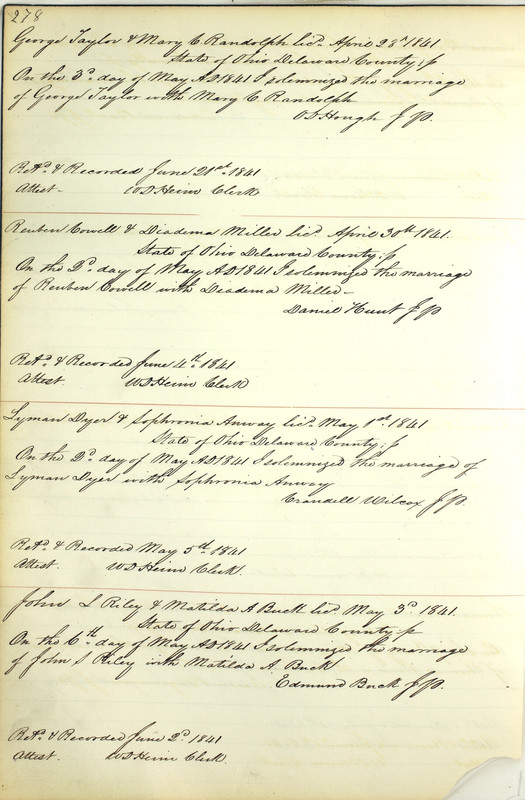 278
George Taylor & Mary C. Randolph licd. April 28th 1841
State of Ohio Delaware County; ss
On the 3d. day of May AD 1841 I solemnized the marriage
of George Taylor with Mary C Randolph
O D Hough J P.
Retd. & Recorded June 21st. 1841
Attest - W D Heim Clerk
Reuben Cowell & Diadema Miller licd. April 30th 1841.
State of Ohio Delaware County; ss
On the 2d. day of May AD 1841 I solemnized the marriage
of Reuben Cowell with Diadema Miller -
Daniel Hunt J P
Retd. & Recorded June 4th. 1841
Attest. W D Heim Clerk
Lyman Dyer & Sophronia Anway licd. May 1st. 1841
State of Ohio Delaware County; ss
On the 2d. day of May AD 1841 I solemnized the marriage of
Lyman Dyer with Sophronia Anway
Crandell Wilcox J P.
Retd. & Recorded May 5th. 1841
Attest. W D Heim Clerk.
John S Riley & Matilda A Buck licd. May 3d. 1841.
State of Ohio Delaware County ss
On the 6th. day of May AD 1841 I solemnized the marriage
of John S Riley with Matilda A. Buck
Edmund Buck J P.
Retd. & Recorded June 2d. 1841
Attest. W D Heim Clerk.